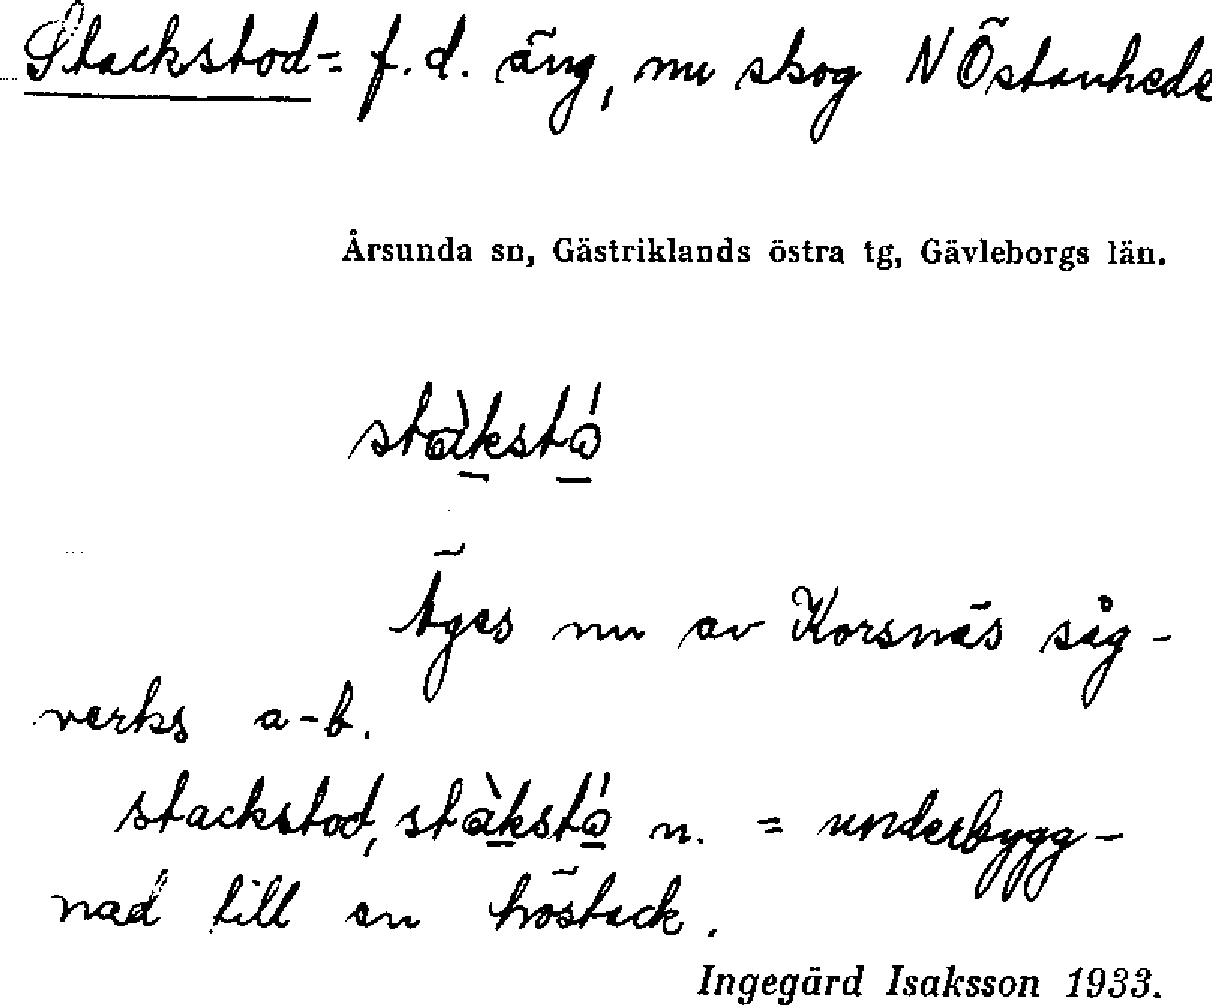 Stackstod = f.d. äng, nu skog N Östanhede
Årsunda sn, Gästriklands östra tg, Gävleborgs län.
stàkstó
Äges nu av Korsnäs såg-
verks a-b.
stackstod, stàkstó n. = underbygg-
nad till en höstack.
Ingegärd Isaksson 1933.